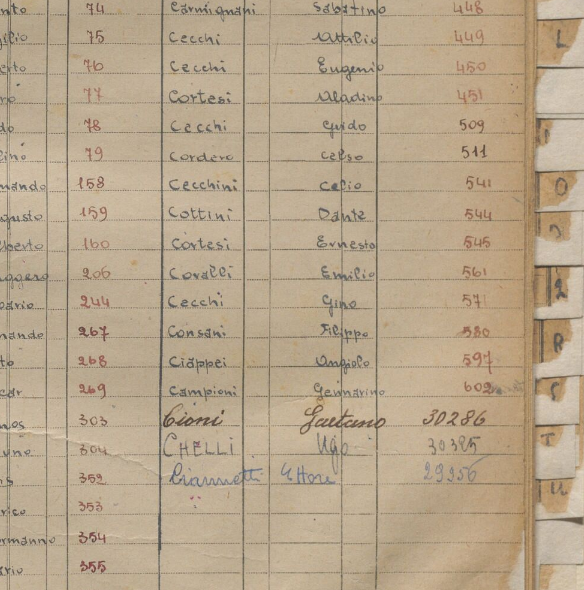 nto 74 Carmignani Sabatino 448
ilio 75 Cecchi Attilio 449 L
erto 76 Cecchi Eugenio 450
77 Cortesi Aladino 451
do 78 Cecchi Guido 509
lino 79 Cordero Celso 511
nando 158 Cecchini Celio 541 O
gusto 159 Cottini Dante 544
lberto 160 Cortesi Ernesto 545
uggero 206 Coralli Emilio 561
dario 244 Cecchi Gino 571
nando 267 Consani Filippo 580 R
to 268 Ciappei Angiolo 597
car 269 Campioni Gennarino 602 S
nos 303 Cioni Gaetano 30286
uno 304 CHELLI Ugo 30385 T
352 Giannetti Ettore 29956 U
rico 353
ormanno 354
ario 355